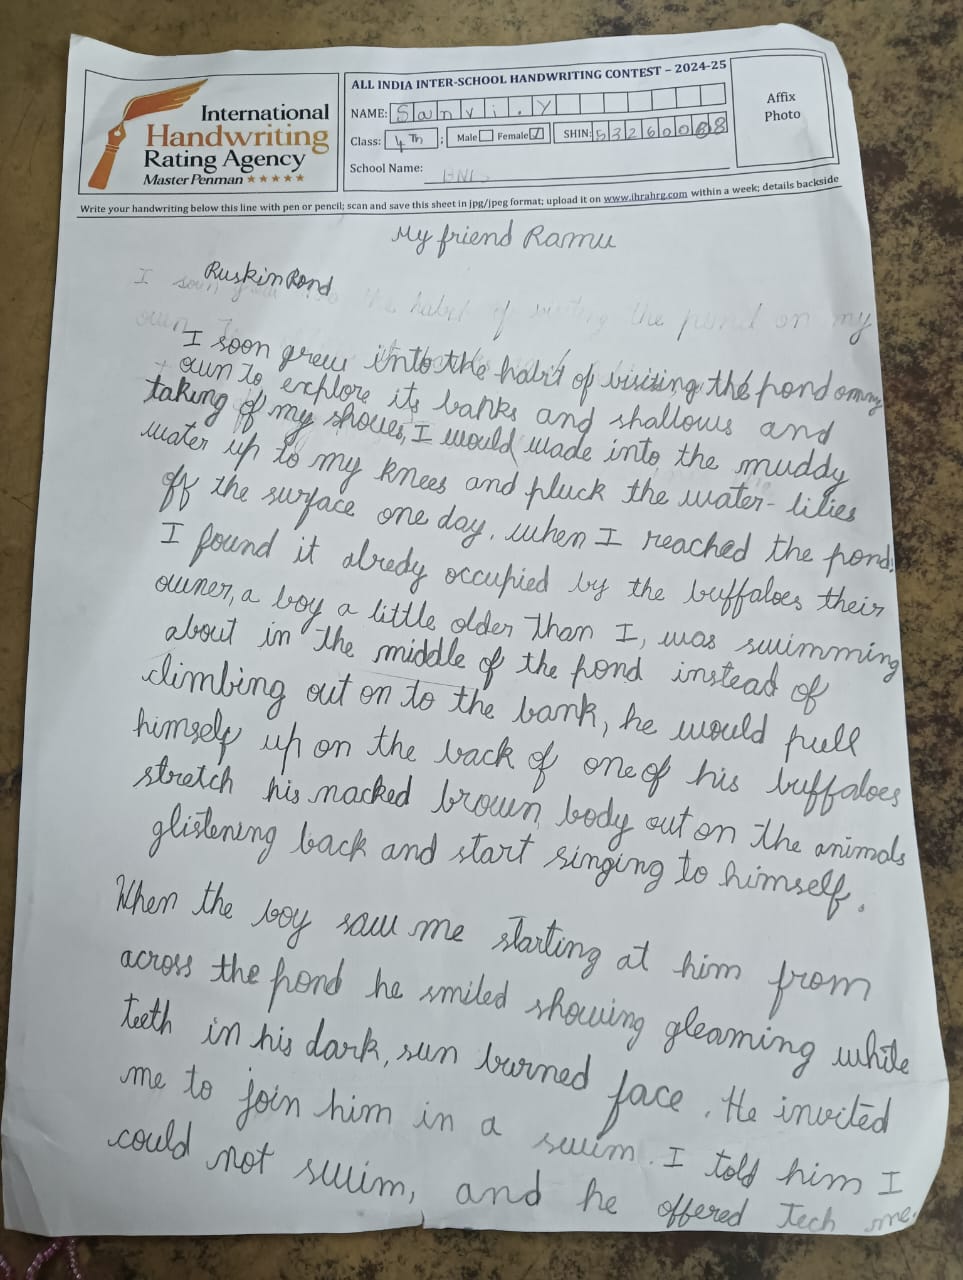 ALL INDIA INTER-SCHOOL HANDWRITING CONTEST – 2024-25
International
Handwriting
Rating Agency
Master Penman ★★★★★
NAME: Sanvi.Y
Class: 4Th : Male Female ✓ SHIN:
School Name:
Affix
Photo
Write your handwriting below this line with pen or pencil; scan and save this sheet in jpg/jpeg format; upload it on www.ihrahrg.com within a week; details backside
My friend Ramu
Ruskin Bond
I soon grew into the habit of visiting the pond on my
own to explore its banks and shallows and
taking of my shoues, I would wade into the muddy
water up to my knees and pluck the water-lilies
off the surface one day. when I reached the pond.
I found it alredy occupied by the buffaloes their
owner, a boy a little older than I, was swimming
about in the middle of the pond instead of
climbing out on to the bank, he would pull
himself up on the back of one of his buffaloes
stretch his nacked brown body out on the animals
glistening back and start singing to himself.
When the boy saw me starting at him from
across the pond he smiled showing gleaming white
teeth in his dark, sun burned face. He invited
me to join him in a swim. I told him I
could not swim, and he offered tech me.